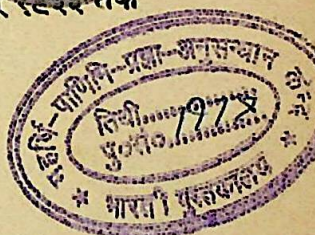 महर्षि-पाणिनि-प्रज्ञा-अनुसन्धान केन्द्र
तिथी..........
पु०सं० 1978
* भारती पुस्तकालय *